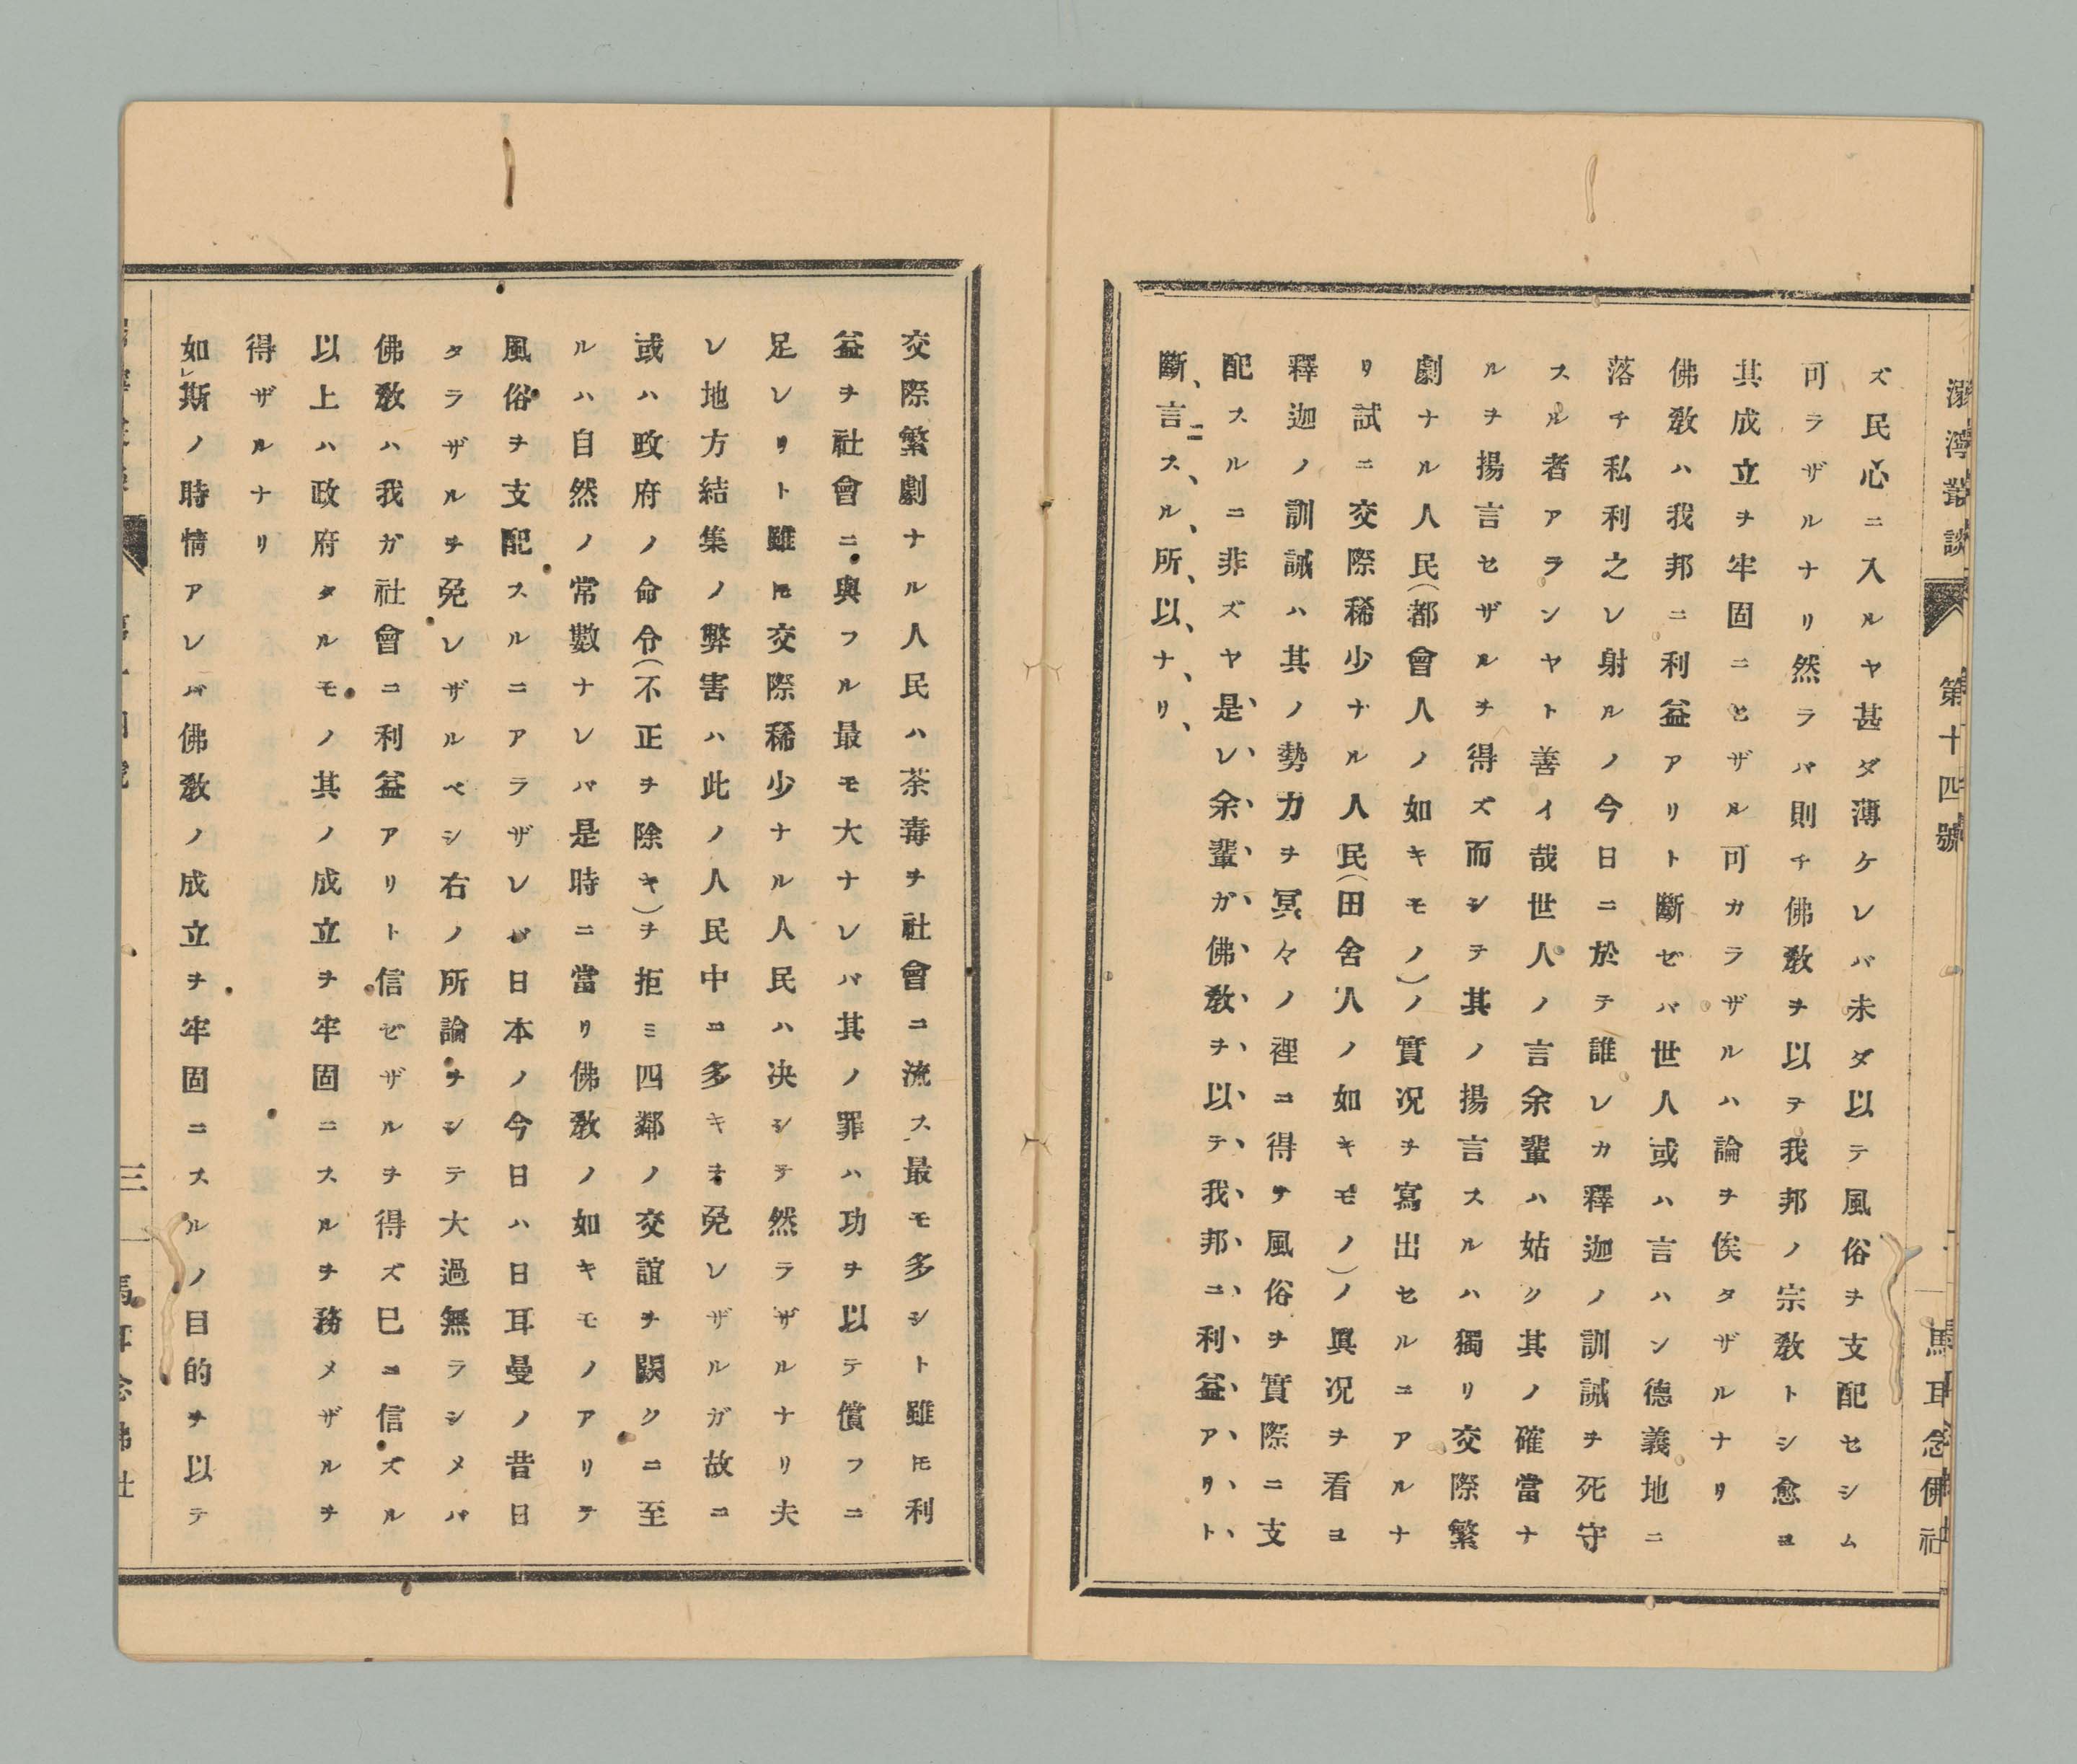 溺濘叢談 第十四號 馬耳念佛社
ズ民心ニ入ルヤ甚ダ薄ケレバ未ダ以テ風俗ヲ支配セシム
可ラザルナリ然ラバ則チ佛敎ヲ以テ我邦ノ宗敎トシ愈ヨ
其成立ヲ牢固ニセザル可カラザルハ論ヲ俟タザルナリ
佛敎ハ我邦ニ利益アリト斷ゼバ世人或ハ言ハン德義地ニ
落チ私利之レ射ルノ今日ニ於テ誰レカ釋迦ノ訓誡ヲ死守
スル者アランヤト善イ哉世人ノ言余輩ハ姑ク其ノ確當ナ
ルヲ揚言セザルヲ得ズ而シテ其ノ揚言スルハ獨リ交際繁
劇ナル人民(都會人ノ如キモノ)ノ實况ヲ寫出セルニアルナ
リ試ニ交際稀少ナル人民(田舍人ノ如キモノ)ノ眞况ヲ看ヨ
釋迦ノ訓誡ハ其ノ勢力ヲ冥々ノ裡ニ得テ風俗ヲ實際ニ支
配スルニ非ズヤ是レ余輩ガ佛敎ヲ以テ我邦ニ利益アリト
斷言スル所以ナリ
交際繁劇ナル人民ハ荼毒ヲ社會ニ流ス最モ多シト雖𪜈利
益ヲ社會ニ與フル最モ大ナレバ其ノ罪ハ功ヲ以テ償フニ
足レリト雖𪜈交際稀少ナル人民ハ决シテ然ラザルナリ夫
レ地方結集ノ弊害ハ此ノ人民中ニ多キヲ免レザルガ故ニ
或ハ政府ノ命令(不正ヲ除キ)ヲ拒ミ四鄰ノ交誼ヲ闕クニ至
ルハ自然ノ常數ナレバ是時ニ當リ佛敎ノ如キモノアリテ
風俗ヲ支配スルニアラザレバ日本ノ今日ハ日耳曼ノ昔日
タラザルヲ免レザルベシ右ノ所論ヲシテ大過無ラシメバ
佛敎ハ我ガ社會ニ利益アリト信ゼザルヲ得ズ已ニ信ズル
以上ハ政府タルモノ其ノ成立ヲ牢固ニスルヲ務メザルヲ
得ザルナリ
如レ斯ノ時情アレバ佛敎ノ成立ヲ牢固ニスルノ目的ヲ以テ
三